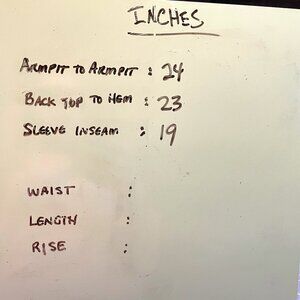 INCHES
ARMPIT TO ARMPIT : 24
BACK TOP TO HEM : 23
SLEEVE INSEAM : 19
WAIST :
LENGTH :
RISE :